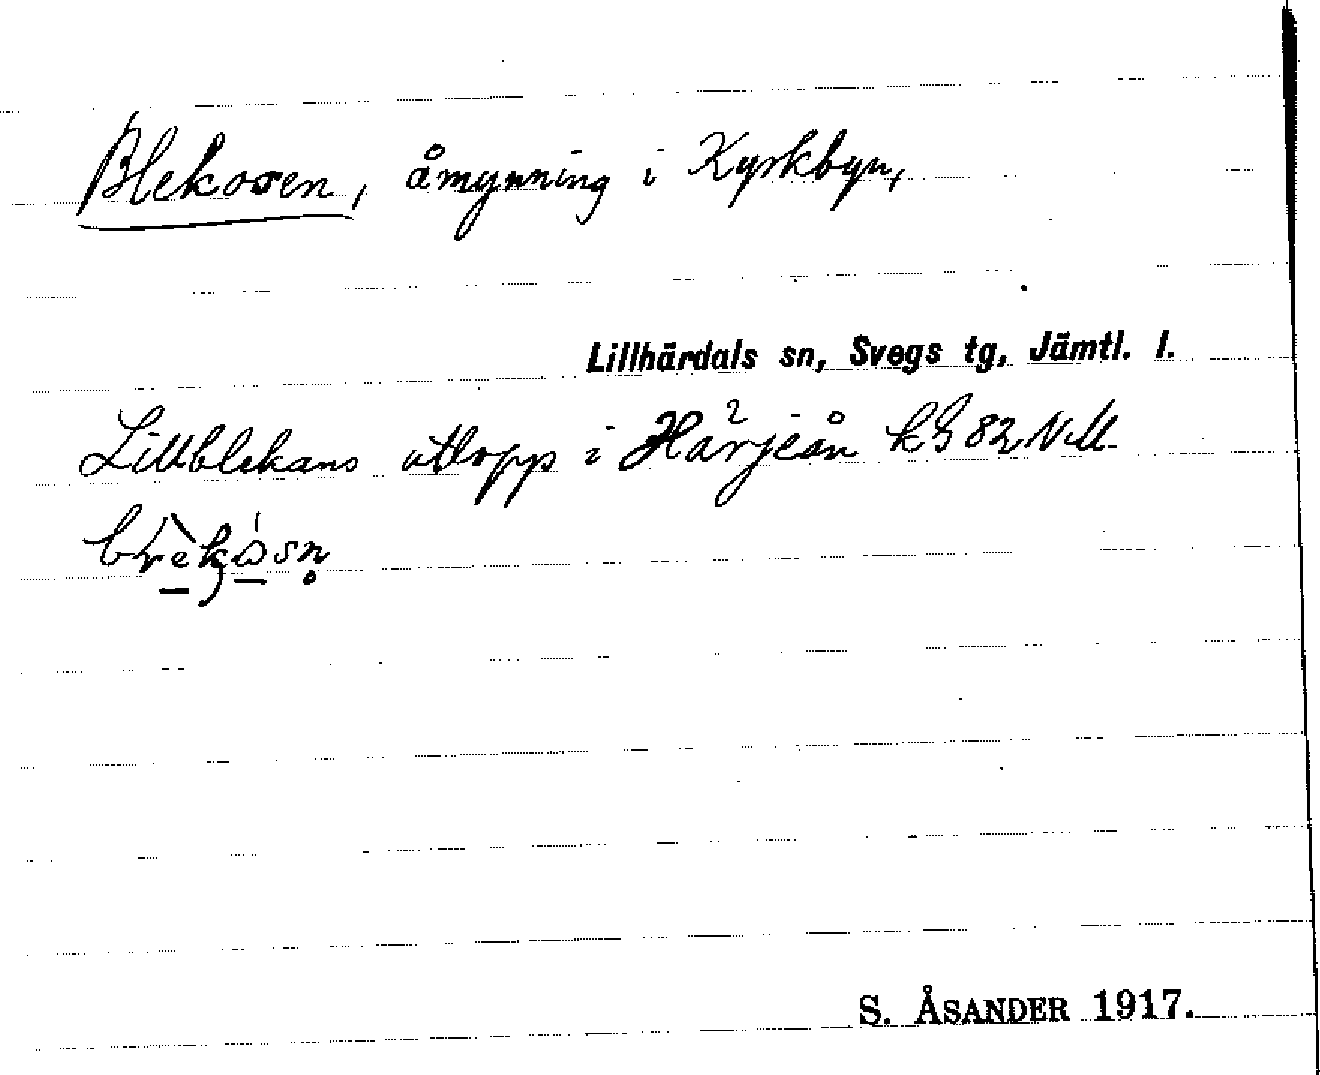 Blekosen, åmynning i Kyrkbyn,
Lillhärdals sn, Svegs tg, Jämtl. l.
Lillblekans utlopp i Härjeån 82 NV
S. ÅSANDER 1917.